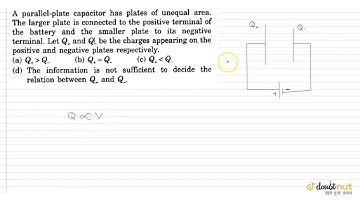 A parallel-plate capacitor has plates of unequal area.
The larger plate is connected to the positive terminal of
the battery and the smaller plate to its negative
terminal. Let Q₊ and Q₋ be the charges appearing on the
positive and negative plates respectively.
(a) Q₊ > Q₋ (b) Q₊ = Q₋ (c) Q₊ < Q₋
(d) The information is not sufficient to decide the
relation between Q₊ and Q₋.
Q₊ Q₋
+ -
Q ∝ V
doubtnut